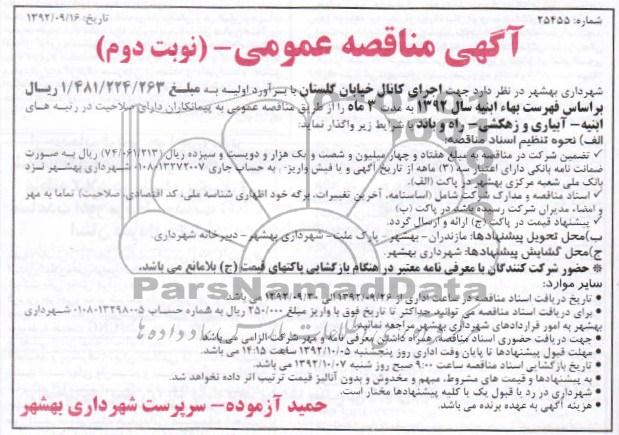 شماره: ۲۵۴۵۵
تاریخ: ۱۳۹۲/۰۹/۱۶
آگهی مناقصه عمومی - (نوبت دوم)
شهرداری بهشهر در نظر دارد جهت اجرای کانال خیابان گلستان با برآورد اولیه به مبلغ ۱/۴۸۱/۲۲۴/۲۶۳ ریال
براساس فهرست بهاء ابنیه سال ۱۳۹۲ به مدت ۳ ماه را از طریق مناقصه عمومی به پیمانکاران دارای صلاحیت در رتبه های
ابنیه - آبیاری و زهکشی - راه و باند، با شرایط زیر واگذار نماید:
الف) نحوه تنظیم اسناد مناقصه:
✓ تضمین شرکت در مناقصه به مبلغ هفتاد و چهار میلیون و شصت و یک هزار و دویست و سیزده ریال (۷۴/۰۶۱/۲۱۳) ریال به صورت
ضمانت نامه بانکی دارای اعتبار سه (۳) ماهه از تاریخ آگهی و یا فیش واریز. - به حساب جاری ۰۱۰۸۰۱۳۲۷۲۰۰۷ شهرداری بهشهر نزد
بانک ملی شعبه مرکزی بهشهر در پاکت (الف).
✓ اسناد مناقصه و مدارک شرکت شامل (اساسنامه، آخرین تغییرات، برگه خود اظهاری شناسه ملی، کد اقتصادی، صلاحیت) تماما به مهر
و امضاء مدیران شرکت رسیده باشد در پاکت (ب)
✓ پیشنهاد قیمت در پاکت (ج) ارائه و ارسال گردد.
ب) محل تحویل پیشنهادها: مازندران - بهشهر - پارک ملت - شهرداری بهشهر - دبیرخانه شهرداری.
ج) محل گشایش پیشنهادها: شهرداری بهشهر.
* حضور شرکت کنندگان با معرفی نامه معتبر در هنگام بازگشایی پاکتهای قیمت (ج) بلامانع می باشد.
ParsNamadData
سایر موارد:
• تاریخ دریافت اسناد مناقصه در ساعت اداری از ۱۳۹۲/۰۹/۲۶ الی ۱۳۹۲/۰۹/۳۰ می باشد.
• برای دریافت اسناد مناقصه می توانید حداکثر تا تاریخ فوق با واریز مبلغ ۲۵۰/۰۰۰ ریال به شماره حساب ۰۱۰۸۰۱۳۲۹۸۰۰۵ شهرداری
بهشهر به امور قراردادهای شهرداری بهشهر مراجعه نمائید.
• جهت دریافت حضوری اسناد مناقصه، همراه داشتن معرفی نامه و مهر شرکت الزامی می باشد.
• مهلت قبول پیشنهادها تا پایان وقت اداری روز پنجشنبه ۱۳۹۲/۱۰/۰۵ ساعت ۱۴:۱۵ می باشد.
• تاریخ بازگشایی اسناد مناقصه ساعت ۹:۰۰ صبح روز شنبه ۱۳۹۲/۱۰/۰۷ می باشد.
• به پیشنهادها و قیمت های مشروط، مبهم و مخدوش و بدون آنالیز قیمت ترتیب اثر داده نخواهد شد.
• شهرداری در رد یا قبول یک یا کلیه پیشنهادها مختار است.
• هزینه آگهی به عهده برنده می باشد.
حمید آزموده - سرپرست شهرداری بهشهر